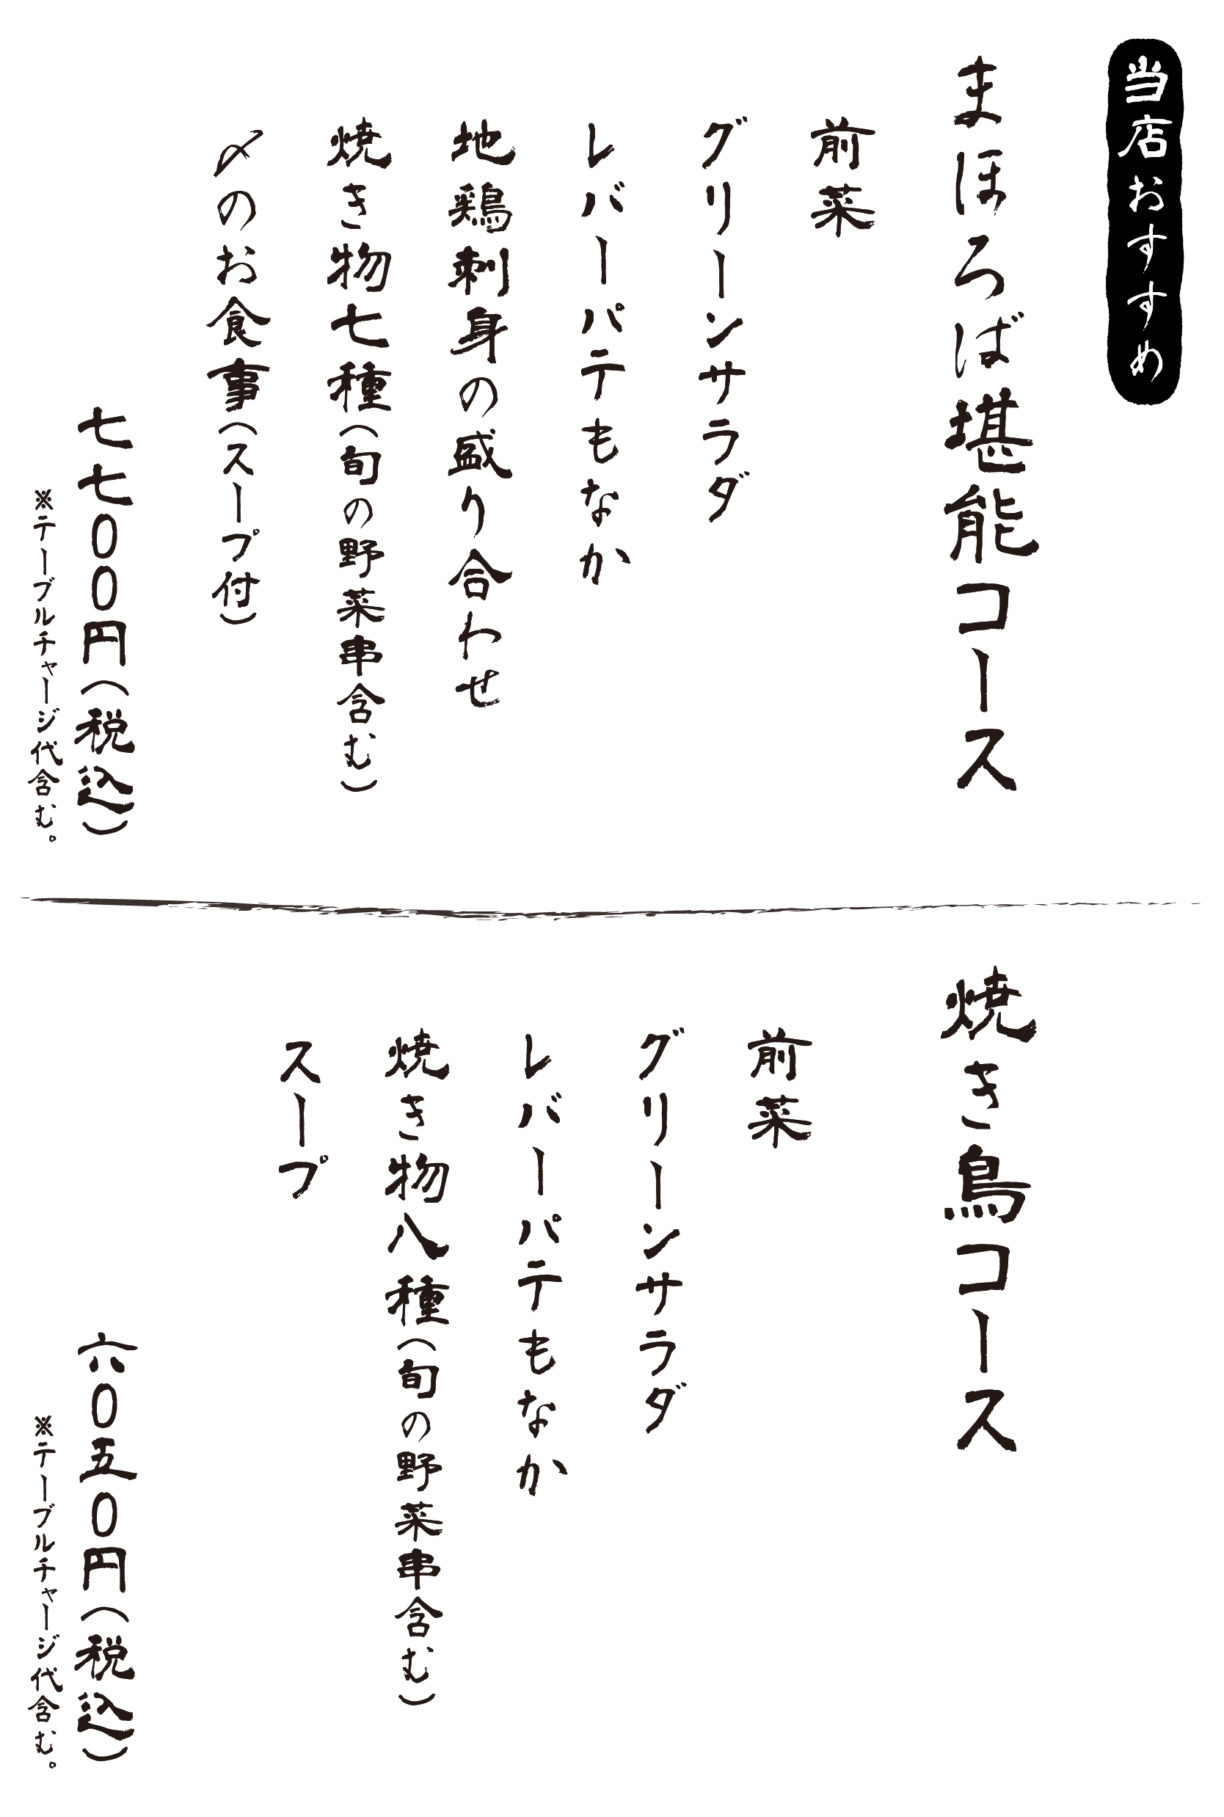 当店おすすめ
まほろば堪能コース
前菜
グリーンサラダ
レバーパテもなか
地鶏刺身の盛り合わせ
焼き物七種(旬の野菜串含む)
〆のお食事(スープ付)
七七00円(税込)
※テーブルチャージ代含む。
焼き鳥コース
前菜
グリーンサラダ
レバーパテもなか
焼き物八種(旬の野菜串含む)
スープ
六0五0円(税込)
※テーブルチャージ代含む。